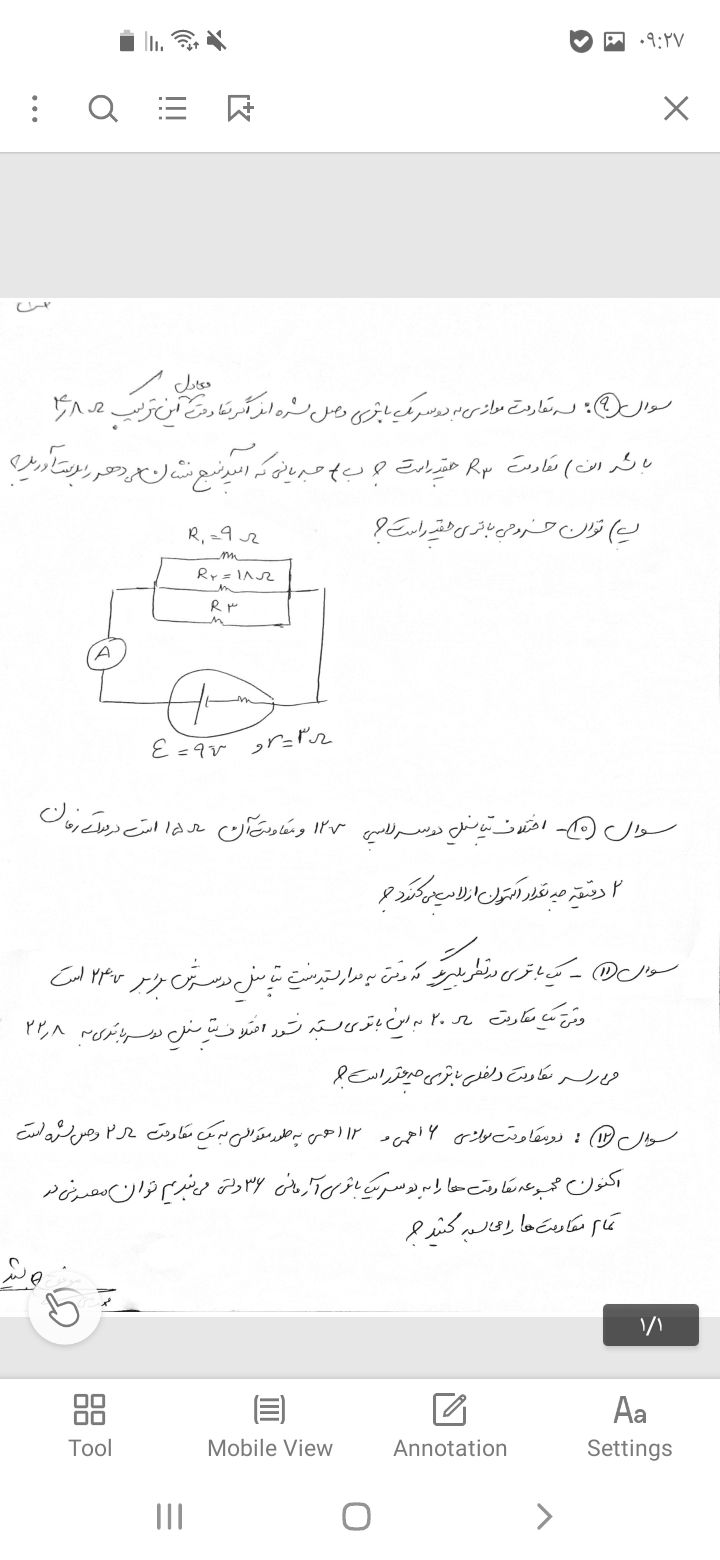 ۰۹:۲۷
سوال ۹: سه مقاومت موازی به دو سر یک باتری وصل شده اند اگر مقاومت معادل این ترکیب ۴٫۸ Ω
باشد الف) مقاومت R۳ چقدر است؟ ب) جریانی که آمپرسنج نشان می دهد را بدست آورید؟
پ) توان خروجی باتری چقدر است؟
R₁=۹ Ω
R۲=۱۸ Ω
R۳
A
ε=۹v و r=۳Ω
سوال ۱۰- اختلاف پتانسیل دو سر لامپی ۱۲v و مقاومت آن ۱۵Ω است در مدت زمان
۲ دقیقه چه تعداد الکترون از لامپ می گذرد؟
سوال ۱۱- یک باتری در نظر بگیرید که وقتی به مدار بسته نیست پتانسیل دو سرش برابر ۲۴v است
وقتی یک مقاومت ۲۰ Ω به این باتری بسته شود اختلاف پتانسیل دو سر باتری به ۲۲٫۸
می رسد مقاومت داخلی باتری چقدر است؟
سوال ۱۲: دو مقاومت موازی ۶ اهمی و ۱۲ اهمی به طور متوالی به یک مقاومت ۲Ω وصل شده است
اکنون مجموعه مقاومت ها را به دو سر یک باتری آرمانی ۳۶ ولتی می بندیم توان مصرفی در
تمام مقاومت ها را محاسبه کنید؟
۱/۱
Tool
Mobile View
Annotation
Settings